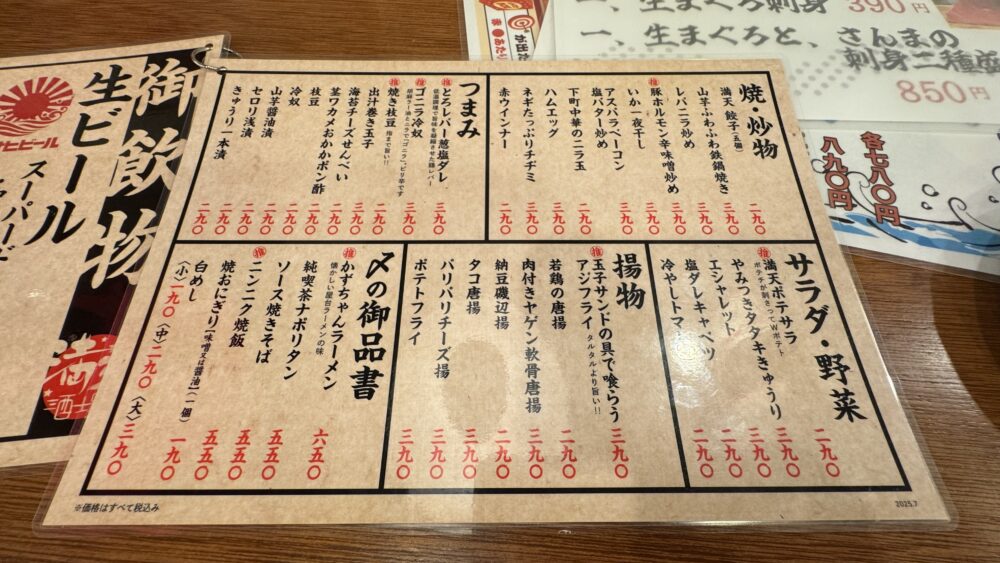 焼・炒物
満天餃子(五個) 二九〇
山芋ふわふわ鉄鍋焼き 三九〇
レバニラ炒め 三九〇
豚ホルモン辛味噌炒め 三九〇
いか一夜干し 三九〇
アスパラベーコン
塩バター炒め 三九〇
下町中華のニラ玉 二九〇
ハムエッグ 二九〇
ネギたっぷりチヂミ 二九〇
赤ウインナー 二九〇
つまみ
推 とろレバー葱塩ダレ 三九〇
低温調理で旨味を凝縮させた鶏レバー
推 ゴニラ冷奴 三九〇
推 焼き枝豆 指まで旨い!! 二九〇
出汁巻き玉子 二九〇
海苔チーズせんべい 二九〇
茎ワカメおかかポン酢 二九〇
枝豆 二九〇
冷奴 二九〇
山芋醤油漬 二九〇
セロリ浅漬 二九〇
きゅうり一本漬 二九〇
サラダ・野菜
推 満天ポテサラ 二九〇
ポテチが刺さってWポテト
やみつきタタキきゅうり 三九〇
エシャレット 二九〇
塩ダレキャベツ 二九〇
冷やしトマト 二九〇
揚物
推 玉子サンドの具で喰らう
アジフライ タルタルより旨い!! 三九〇
若鶏の唐揚 二九〇
肉付きヤゲン軟骨唐揚 三九〇
納豆磯辺揚 二九〇
タコ唐揚 三九〇
パリパリチーズ揚 三九〇
ポテトフライ 三九〇
〆の御品書
推 かずちゃんラーメン 六五〇
懐かしい屋台ラーメンの味
純喫茶ナポリタン 五五〇
ソース焼きそば 五五〇
推 ニンニク焼飯 五五〇
焼おにぎり(味噌又は醤油)(一個) 一九〇
白めし
〈小〉一九〇 〈中〉二九〇 〈大〉三九〇
※価格はすべて税込み
2025.7
御飲物
生ビール
一、生まぐろ刺身 390円
一、生まぐろと、さんまの
刺身二種盛
850円
各七八〇円
八九〇円